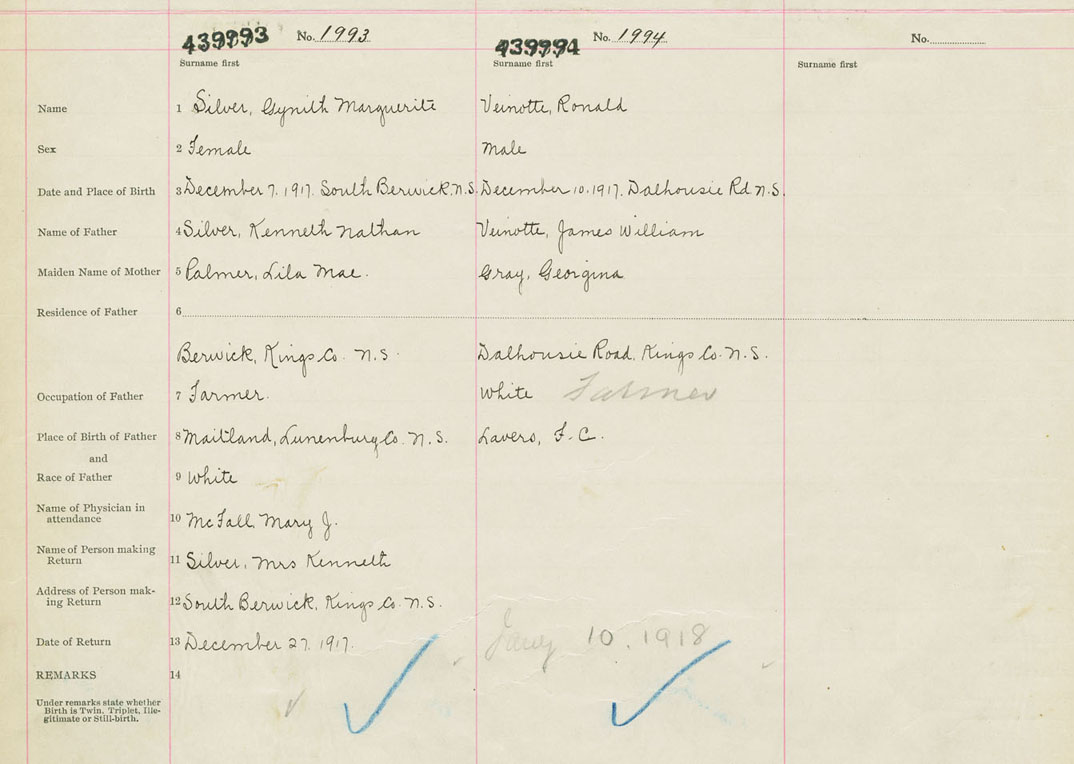 439993 No. 1993 439994 No. 1994 No.
Surname first Surname first Surname first
Name 1 Silver, Gynith Marguerite Veinotte, Ronald
Sex 2 Female Male
Date and Place of Birth 3 December 7. 1917. South Berwick, N.S. December 10. 1917. Dalhousie Rd. N.S.
Name of Father 4 Silver, Kenneth Nathan Veinotte, James William
Maiden Name of Mother 5 Palmer, Lila Mae. Gray, Georgina
Residence of Father 6
Berwick, Kings Co. N.S. Dalhousie Road, Kings Co. N.S.
Occupation of Father 7 Farmer. White Farmer
Place of Birth of Father 8 Maitland, Lunenburg Co. N.S. Lavers, F.C.
and
Race of Father 9 White
Name of Physician in
attendance 10 McFall, Mary J.
Name of Person making
Return 11 Silver, Mrs Kenneth
Address of Person mak-
ing Return 12 South Berwick, Kings Co. N.S.
Date of Return 13 December 27. 1917. Jany 10. 1918
REMARKS 14
Under remarks state whether
Birth is Twin, Triplet, Ille-
gitimate or Still-birth.